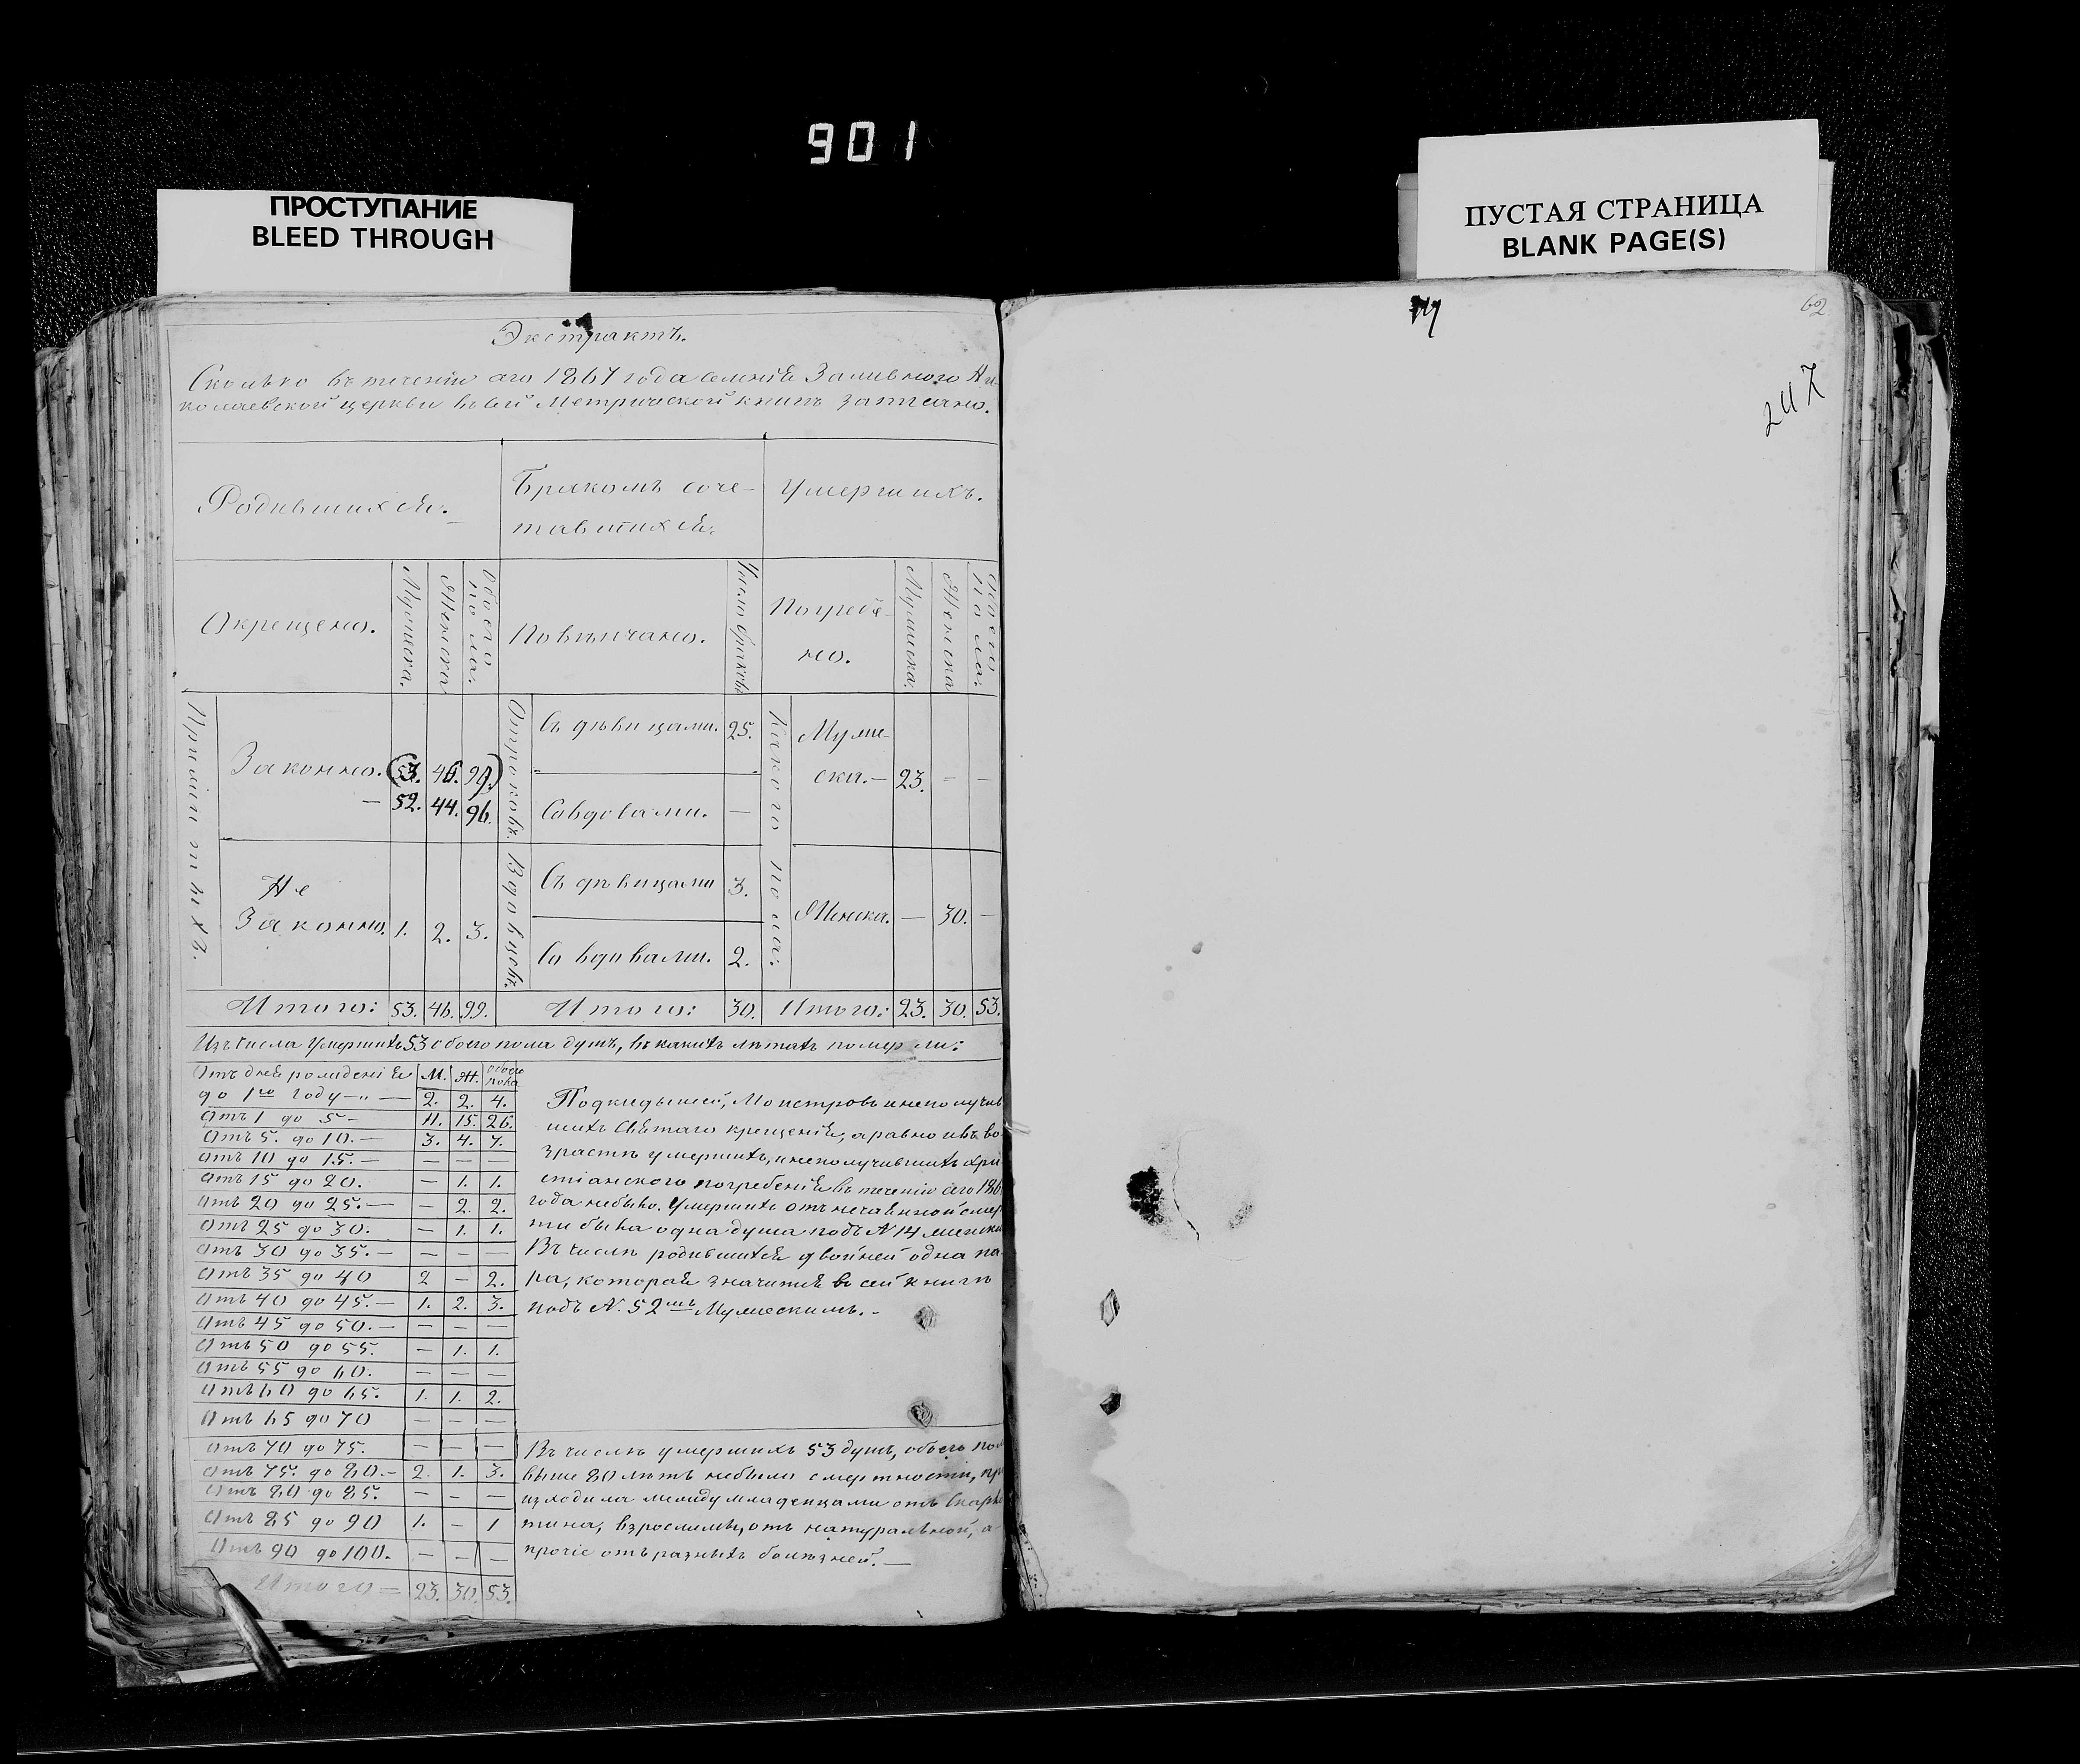 901
ПРОСТУПАНИЕ
BLEED THROUGH
ПУСТАЯ СТРАНИЦА
BLANK PAGE(S)
62
247
Экстрактъ.
Сколько въ теченіи сего 1867 года селенія Заливного Ни-
колаевской церкви въ сей Метрической книгѣ записано.
Родившихся. Бракомъ соче- Умершихъ.
тавшихся.
Окрещено. Мужеска. Женска Обоего пола. Повѣнчано. Число браковъ Погребе- Мужеска. Женска Обоего пола.
но.
Прижитыхъ. Законно. 53. 46. 99. Отроковъ. Съ дѣвицами. 25. Какого пола: Муже-
ска.— 23. — —
— 52. 44. 96. Со вдовами. —
Не
Законно. 1. 2. 3. Вдовцовъ. Съ дѣвицами 3. Женска. — 30. —
Со вдовами. 2.
Итого: 53. 46. 99. Итого: 30. Итого: 23. 30. 53.
Изъ числа умершихъ 53 обоего пола душъ, въ какихъ лѣтахъ померли:
Отъ дней рожденія М. Ж. Обоего пола
до 1го году —„— 2. 2. 4.
Отъ 1 до 5 — 11. 15. 26.
Отъ 5. до 10. — 3. 4. 7.
Отъ 10 до 15. — — — —
Отъ 15 до 20. — 1. 1.
Отъ 20 до 25. — — 2. 2.
Отъ 25 до 30. — 1. 1.
Отъ 30 до 35. — — — —
Отъ 35 до 40 2 — 2.
Отъ 40 до 45. — 1. 2. 3.
Отъ 45 до 50. — — — —
Отъ 50 до 55. — 1. 1.
Отъ 55 до 60. — — —
Отъ 60 до 65. 1. 1. 2.
Отъ 65 до 70 — — —
Отъ 70 до 75. — — —
Отъ 75. до 80. — 2. 1. 3.
Отъ 80 до 85. — — —
Отъ 85 до 90 1. — 1
Отъ 90 до 100. — — —
Итого = 23. 30. 53.
Подкидышей, Монстровъ и неполучив
шихъ Святаго крещенія, а равно и въ во-
зрастѣ умершихъ, и неполучившихъ хри
стіанского погребенія въ теченіи сего 186
года небыло. Умершихъ отъ нечаянной смер
ти была одна душа подъ N 14 женска
Въ числѣ родившихся двойней одна па-
ра, которая значится въ сей книгѣ
подъ N. 52мъ Мужескимъ. —
Въ числѣ умершихъ 53 душъ, обоего пол
выше 80 лѣтъ небыло смертности, пр
изходила между младенцами отъ Скарла
тина, взрослымъ, отъ натуральной, а
прочіе отъ разныхъ болѣзней. —